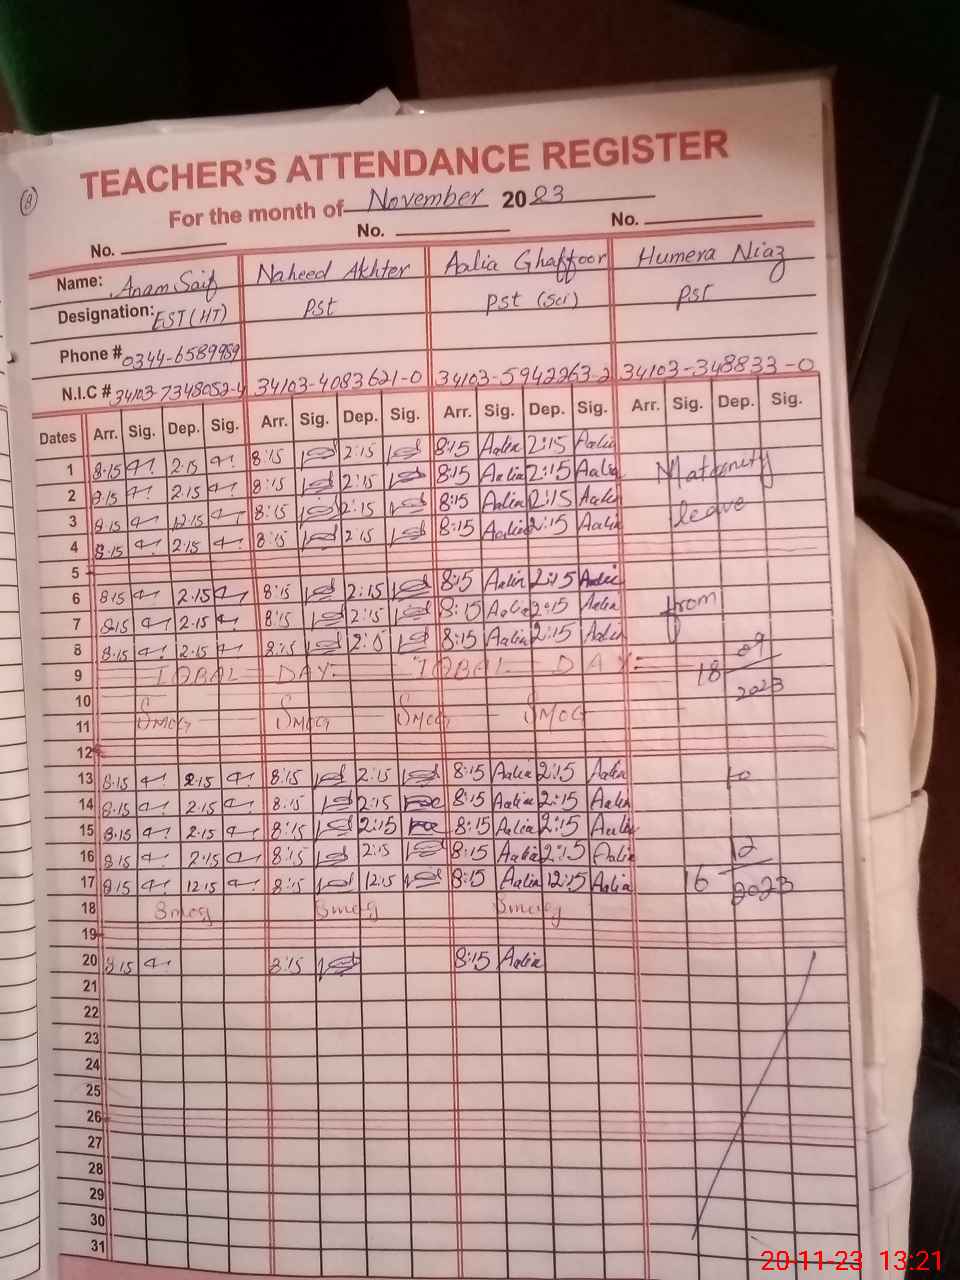 8
TEACHER'S ATTENDANCE REGISTER
For the month of November 2023
No. No. No.
Name: Anam Saif Naheed Akhter Aalia Ghaffoor Humera Niaz
Designation: EST (HT) Pst Pst (Sci) Pst
Phone # 0344-6589989
N.I.C # 34103-7348052-4 34103-4083621-0 34103-5942263-2 34103-348833-0
Dates Arr. Sig. Dep. Sig. Arr. Sig. Dep. Sig. Arr. Sig. Dep. Sig. Arr. Sig. Dep. Sig.
1 8:15 2:15 8:15 2:15 8:15 Aalia 2:15 Aalia Maternity
2 8:15 2:15 8:15 2:15 8:15 Aalia 2:15 Aalia
3 8:15 12:15 8:15 2:15 8:15 Aalia 2:15 Aalia leave
4 8:15 2:15 8:15 2:15 8:15 Aalia 2:15 Aalia
5
6 8:15 2:15 8:15 2:15 8:15 Aalia 2:15 Aalia from
7 8:15 2:15 8:15 2:15 8:15 Aalia 2:15 Aalia
8 8:15 2:15 8:15 2:15 8:15 Aalia 2:15 Aalia
9 IQBAL DAY IQBAL DAY 18 09 2023
10
11 Smog Smog Smog Smog
12
13 8:15 2:15 8:15 2:15 8:15 Aalia 2:15 Aalia to
14 8:15 2:15 8:15 2:15 8:15 Aalia 2:15 Aalia
15 8:15 2:15 8:15 2:15 8:15 Aalia 2:15 Aalia
16 8:15 2:15 8:15 2:15 8:15 Aalia 2:15 Aalia
17 8:15 12:15 8:15 12:15 8:15 Aalia 12:15 Aalia 16 12 2023
18 Smog Smog Smog
19
20 8:15 8:15 8:15 Aalia
21
22
23
24
25
26
27
28
29
30
31
20-11-23 13:21